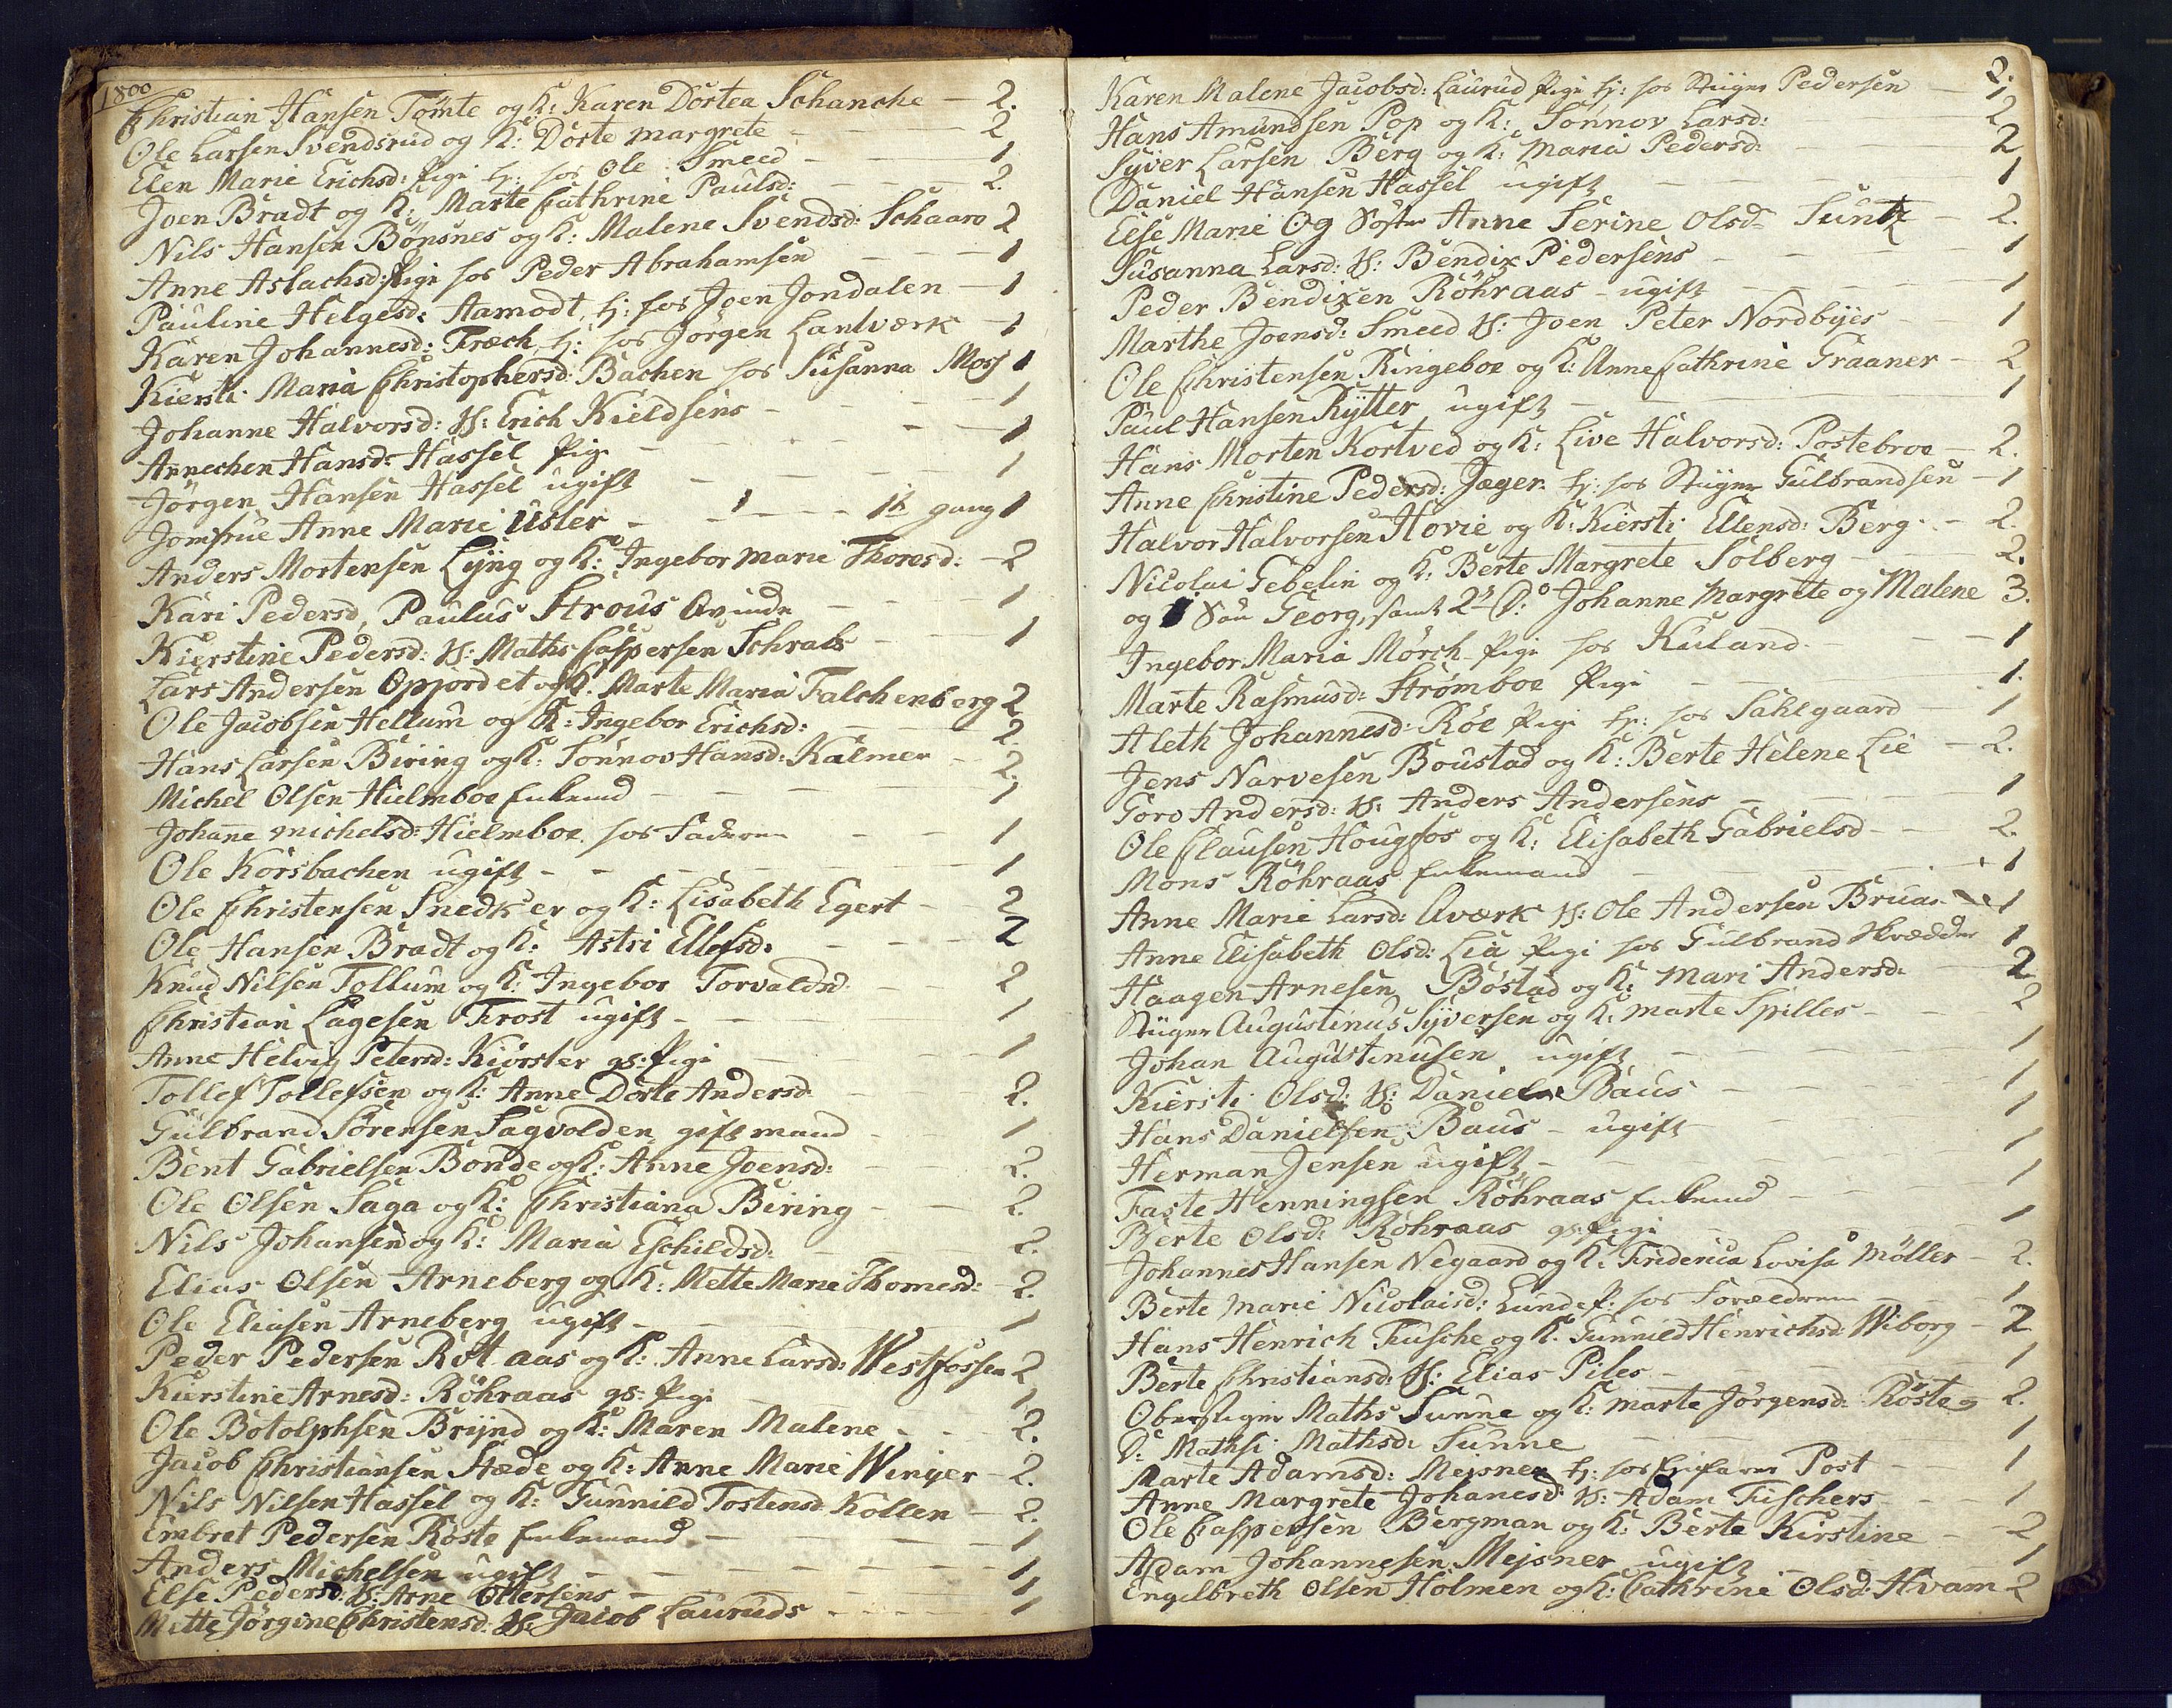 1800
Christian Hansen Tomte og K: Karen Dortea Schanche - 2.
Ole Larsen Svendsrud og K: Dorte margrete - 2
Elen Marie Erichsd: Pige tj: hos Ole Smeed - 1
Joen Bradt og K: Marte Cathrine Paulsd: - 2.
Nils Hansen Bönsnes og K: Malene Svendsd: Schaaro 2
Anne Aslachsd: Pige hos Peder Abrahamsen - 1
Pauline Helgesd: Aamodt, tj: hos Joen Jondalen - 1
Karen Johannesd: Fræch tj: hos Jörgen Lantværk - 1
Kiersti Maria Christophersd: Bachen hos Susanna Mosf 1
Johanne Halvorsd: H: Erich Kieldsens - 1
Annechen Hansd: Hassel Pige - 1
Jörgen Hansen Hassel ugift - 1
Jomfrue Anne Marie Usler - 1te gang 1
Anders Mortensen Lyng og K: Ingebor marie Thoresd: - 2
Kari Pedersd, Paulus Strous Qvinde - 1
Kierstine Pedersd: H: Maths Caspersen Schrabs - 1
Lars Andersen Opjordet og K. Marte Maria Falchenberg 2
Ole Jacobsen Hellum og K: Ingebor Erichsd: - 2
Hans Larsen Biring og K: Sönnov Hansd: Kalmer - 2.
Michel Olsen Hielmboe Enkemd - 1
Johane michelsd: Hielmboe hos Faderen - 1
Ole Korsbachen ugift - 1
Ole Christensen Snedker og K: Lisabeth Egert - 2
Ole Hansen Bradt og K: Astri Ellefsd: - 2
Knud Nilsen Tollum og K: Ingebor Torvaldsd - 2
Christian Lagesen Frost ugift - 1
Anne Helvig Petersd: Kiörster gs: Pige - 1
Tollef Tollefsen og K: Anne Dorte Andersd - 2.
Gulbrand Sörensen Sagvolden gift mand - 1
Bent Gabrielsen Bonde og K: Anne Joensd: - 2.
Ole Olsen Saga og K: Christiana Biring - 2.
Nils Johansen og K: Maria Eschildsd: - 2.
Elias Olsen Arneberg og K: Mette Marie Thomesd: - 2.
Ole Eliasen Arneberg ugift - 1
Peder Pedersen Röt aas og K: Anne Larsd: Westfossen 2
Kierstine Arnesd: Röhraas gs: Pige - 1
Ole Botolphsen Brynd og K: Maren Malene - 2.
Jacob Christiansen Stæde og K: Anne Marie Winger - 2.
Nils Nilsen Hassel og K: Gunnild Tostensd Kollen - 2.
Embret Pedersen Roste Enkemand - 1
Anders Michelsen ugift - 1
Else Pedersd: H: Arne Ottersens - 1
Mette Jörgine Christensd: H: Jacob Lauruds - 1
2.
Karen Malene Jacobsd: Laurud Pige tj: hos Stiger Pedersen - 1
Hans Amundsen Pop og K: Sönnov Larsd: - 2
Syver Larsen Berg og K: Maria Pedersd: - 2
Daniel Hansen Hassel ugift - 1
Else Marie Og Söster Anne Serine Olsd: Suntz - 2.
Susanna Larsd: H: Bendix Pedersens - 1
Peder Bendixen Röhraas - ugift - 1
Marthe Joensd: Smeed H: Joen Peter Nordbyes - 1
Ole Christensen Ringeboe og K: Anne Cathrine Graaner - 2
Paul Hansen Rytter ugift - 1
Hans Morten Kortved og K: Live Halvorsd: Postebroe - 2.
Anne Christine Pedersd: Jæger tj: hos Stiger Gulbrandsen - 1
Halvor Halvorsen Hovie og K: Kiersti Ellensd: Berg - 2.
Nicolai Gebelin og K: Berte Margrete Solberg - 2.
og 1 Sön Georg, samt 2de D: Johanne Margrete og Malene 3.
Ingebor Maria Mörch Pige hos Kuland - 1
Marte Rasmusd: Strömboe Pige - 1.
Aleth Johannesd: Röe Pige tj: hos Sahlgaard - 1
Jens Narvesen Boustad og K: Berte Helene Lie - 2.
Goro Andersd: H: Anders Andersens - 1
Ole Clausen Hougfos og K: Elisabeth Gabrielsd - 2.
Mons Röhraas Enkemand - 1
Anne Marie Larsd: Qværk H: Ole Andersen Bruas - 1
Anne Elisabeth Olsd: Lia Pige hos Gulbrand Skrædder 1
Haagen Arnesen Böstad og K: Mari Andersd: - 2
Stiger Augustinus Syversen og K: marte Spilles - 2
Johan Augustinusen ugift - 1
Kiersti Olsd: H: Daniels Baus - 1
Hans Danielsen Baus - ugift - 1
Herman Jensen ugift - 1
Faste Henningsen Röhraas Enkemd - 1
Berte Olsd: Röhraas gs: Pige - 1
Johannes Hansen Negaard og K: Friderica Lovisa Möller - 2.
Berte Marie Nicolaisd: Lunde P: hos Forældrene - 1
Hans Henrich Fusche og K. Gunnild Henrichsd Wiborg - 2
Berte Christiansd: H: Elias Piles - 1
Oberstiger Maths Sunne og K: marte Jörgensd: Röste og 2.
D: Mathsi Mathsd: Sunne - 1
Marte Adamsd: Meisner tj: hos Post - 1
Anne Margrete Johanesd: H: Adam Fischers - 1
Ole Caspersen Bergman og K: Berte Kirstine - 2
Adam Johannesen Mejsner ugift - 1
Engelbreth Olsen Holmen og K: Cathrine Olsd: Hvam 2